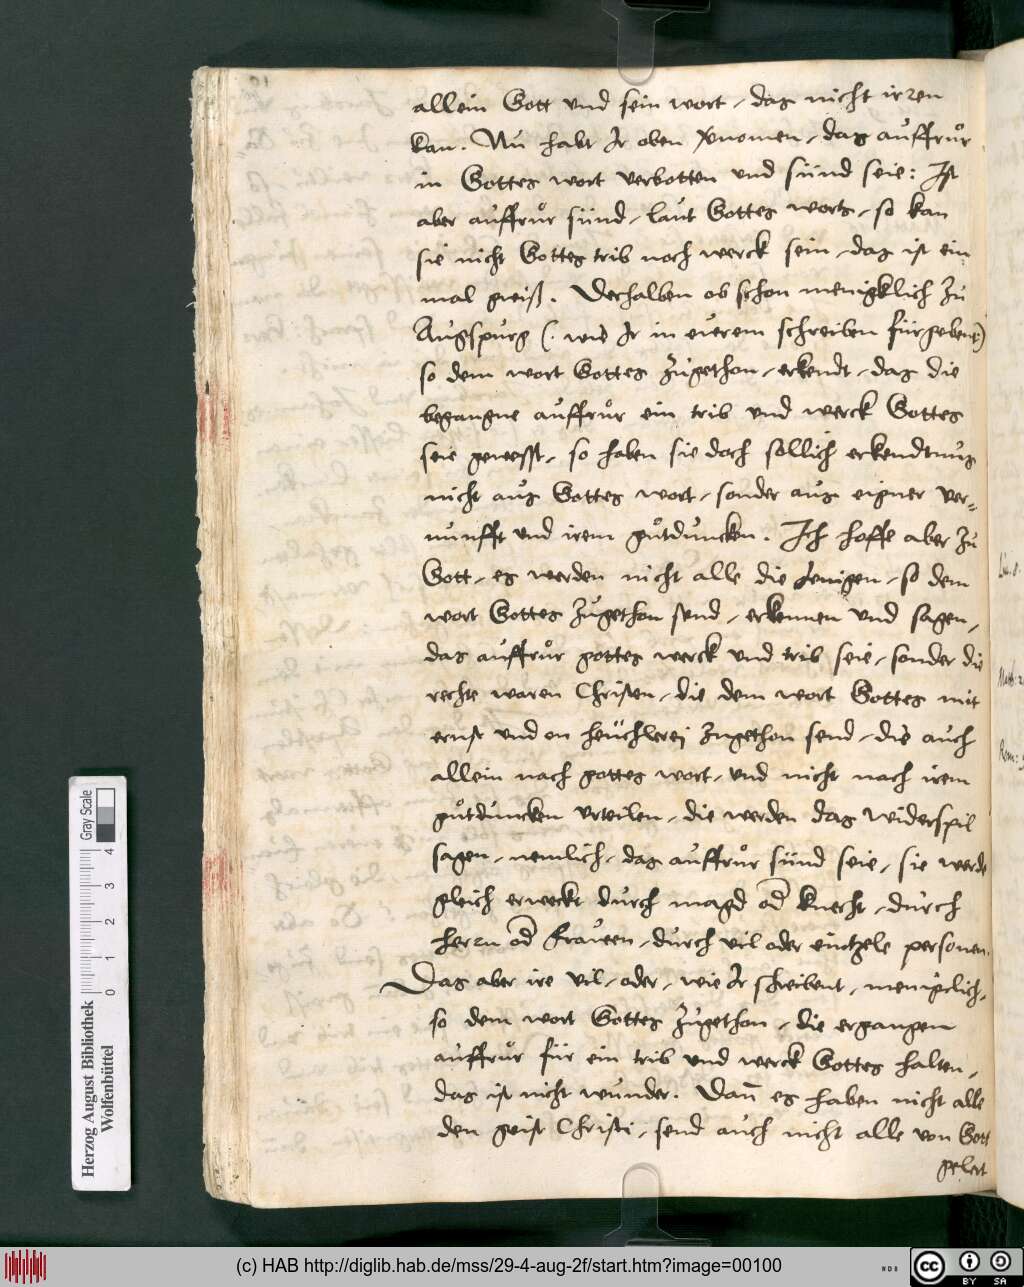 allein Gott und sein wort, das nicht irren
kan. Nu habt Ir oben vernomen, das auffrůr
in Gottes wort verbotten und sünd seie: Ist
aber auffrůr sünd, laut Gottes worts, so kan
sie nicht Gottes trib noch werck sein, das ist ein
mal gwiß. Derhalben ob schon menigklich zu
Augspurg (. wie Ir in euerem schreiben fürgebent)
so dem wort Gottes zugethon, erkendt, das die
begangne auffrůr ein trib und werck Gottes
seie gewesst, so haben sie doch sollich erkendtnus
nicht aus Gottes wort, sonder aus eigner ver=
nunfft und irem gůtduncken. Ich hoffe aber zu
Gott, es werden nicht alle die Jenigen, so dem
wort Gottes zugethon send, erkennen und sagen,
das auffrůr gottes werck und trib seie, sonder die
rechte waren Christen, die dem wort Gottes mit
ernst und on heüchlerej zugethon send, die auch
allein nach gottes wort, und nicht nach irem
gůtduncken vrteilen, die werden das widerspil
sagen, nemlich, das auffrůr sünd seie, sie werde
gleich erweckt durch magd od knecht, durch
herrn od frauen, durch vil oder eintzele personen.
Das aber ire vil, oder, wie Ir schreibent, menigclich,
so dem wort Gottes zugethon, die ergangen
auffrůr für ein trib und werck Gottes halten,
das ist nicht wunder. Dan̄ es haben nicht alle
den geist Christi, send auch nicht alle von Gott
gelert
Herzog August Bibliothek
Wolfenbüttel
Gray Scale
0 1 2 3 4
(c) HAB http://diglib.hab.de/mss/29-4-aug-2f/start.htm?image=00100
WDB
cc BY SA